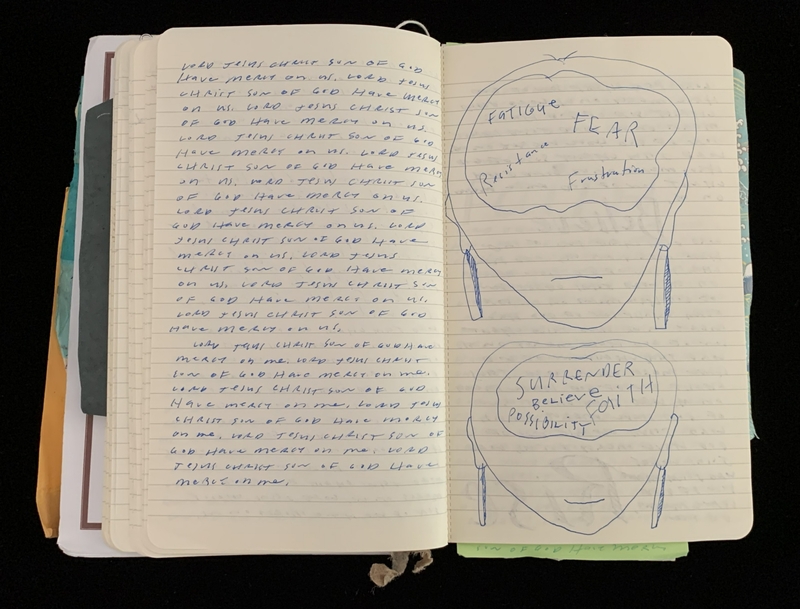 LORD JESUS CHRIST SON OF GOD
Have mercy on us. LORD JESUS
CHRIST SON OF GOD Have mercy
on us. LORD JESUS CHRIST SON
OF GOD Have mercy on us.
LORD JESUS CHRIST SON OF GOD
Have mercy on us. LORD JESUS
CHRIST SON OF GOD Have mercy
on us. LORD JESUS CHRIST SON
OF GOD Have mercy on us.
LORD JESUS CHRIST SON OF
GOD Have mercy on us. LORD
JESUS CHRIST SON OF GOD Have
mercy on us. LORD JESUS
CHRIST SON OF GOD Have mercy
on us. LORD JESUS CHRIST SON
OF GOD Have mercy on us.
LORD JESUS CHRIST SON OF GOD
Have mercy on us.
LORD JESUS CHRIST SON OF GOD Have
mercy on me. LORD JESUS CHRIST
SON OF GOD Have mercy on me.
LORD JESUS CHRIST SON OF GOD
Have mercy on me. LORD JESUS
CHRIST SON OF GOD Have mercy
on me. LORD JESUS CHRIST SON OF
GOD Have mercy on me. LORD
JESUS CHRIST SON OF GOD Have
mercy on me.
FATIGUE
FEAR
Resistance
Frustration
SURRENDER
Believe
FAITH
POSSIBILITY
SON OF GOD HAVE MERCY